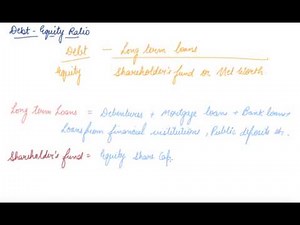 Debt - Equity Ratio
Debt - Long term loans
Equity Shareholder's fund or Net Worth
Long term Loans = Debentures + Mortgage loans + Bank loans +
Loans from financial institutions, Public deposits etc.
Shareholder's fund = Equity Share Cap